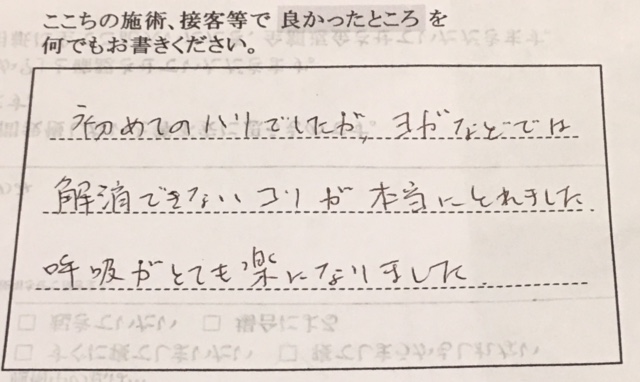 ここちの施術、接客等で 良かったところ を
何でもお書きください。
初めてのハリでしたが、ヨガなどでは
解消できないコリが本当にとれました
呼吸がとても楽になりました.